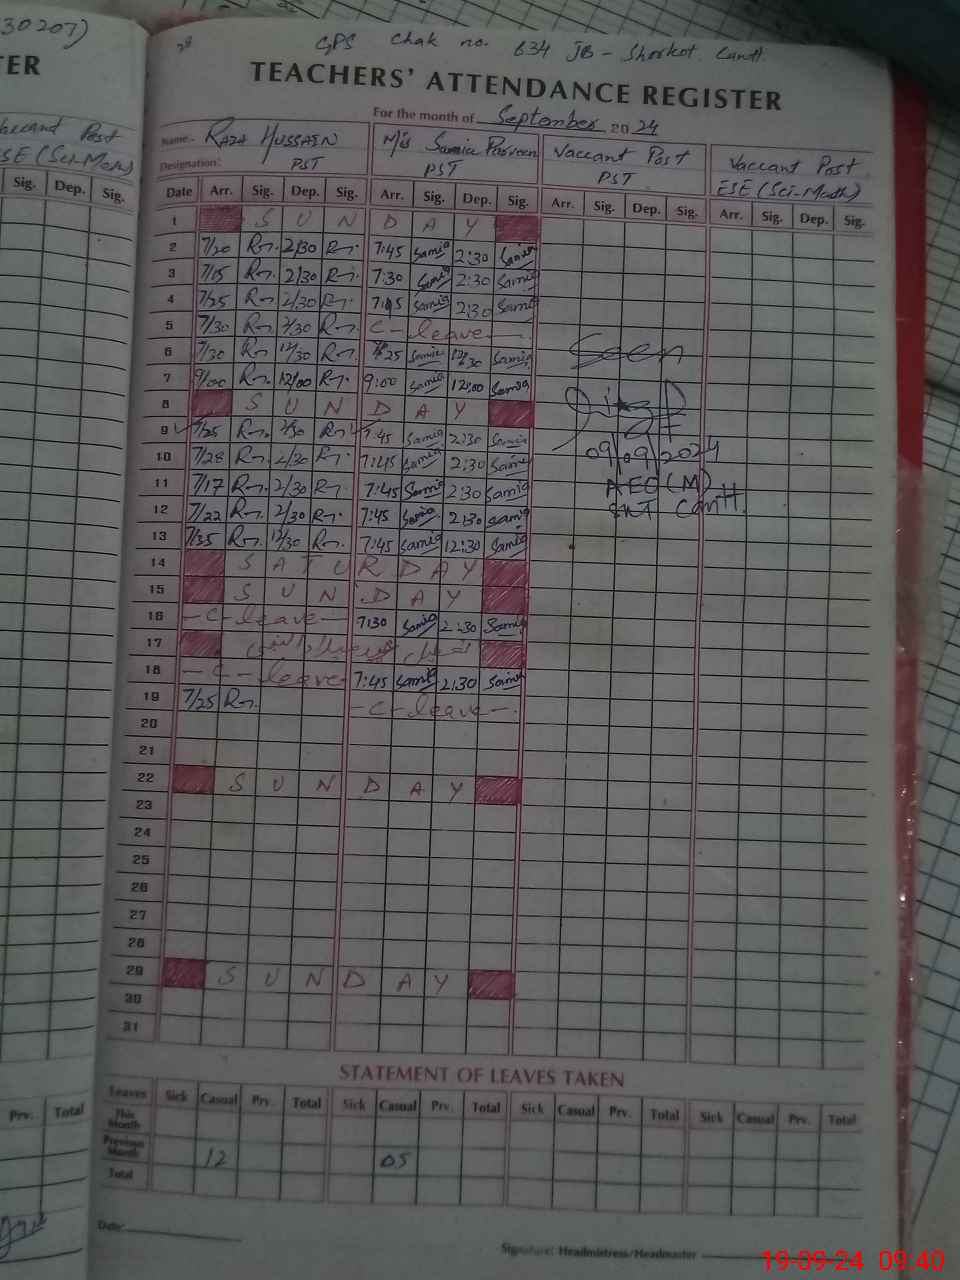 30207)
TER
Post
ESE (Sci-Math)
Sig. Dep. Sig.
GPS Chak no. 634 JB - Shorkot Cantt.
TEACHERS' ATTENDANCE REGISTER
For the month of September 2024
Name: RAZA HUSSAIN M/s Samia Parveen Vaccant Post Vaccant Post
Designation: PST PST PST ESE (Sci-Math)
Date Arr. Sig. Dep. Sig. Arr. Sig. Dep. Sig. Arr. Sig. Dep. Sig. Arr. Sig. Dep. Sig.
1 S U N D A Y
2 7/20 2/30 7:45 Samia 2:30 Samia
3 7/15 2/30 7:30 Samia 2:30 Samia
4 7/25 2/30 7:15 Samia 2:30 Samia
5 7/30 2/30 C-leave-
6 7/30 12/30 7:25 Samia 12:30 Samia
7 9/00 12/00 9:00 Samia 12:00 Samia
8 S U N D A Y
9 7/25 2/30 7:45 Samia 2:30 Samia
10 7/28 2/30 7:45 Samia 2:30 Samia
11 7/17 2/30 7:45 Samia 2:30 Samia
12 7/22 2/30 7:45 Samia 2:30 Samia
13 7/35 12/30 7:45 Samia 12:30 Samia
14 S A T U R D A Y
15 S U N D A Y
16 -C-leave- 7:30 Samia 2:30 Samia
17
18 -C-leave 7:45 Samia 2:30 Samia
19 7/25 -C-leave-
20
21
22 S U N D A Y
23
24
25
26
27
28
29 S U N D A Y
30
31
Seen
09/09/2024
AEO (M)
SKT Cantt.
STATEMENT OF LEAVES TAKEN
Prv. Total
Leaves Sick Casual Prv. Total Sick Casual Prv. Total Sick Casual Prv. Total Sick Casual Prv. Total
This Month
Previous Month 12 05
Total
Date:
Signature: Headmistress/Headmaster
19-09-24 09:40